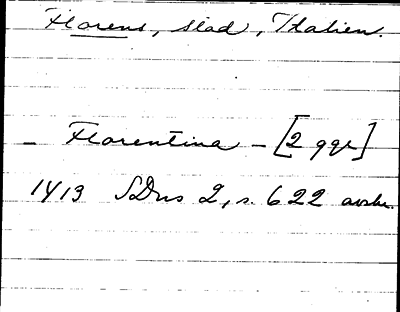 Florens, stad, Italien.
– Florentina – [2 ggr]
1413 SDns 2, s. 622 avskr.